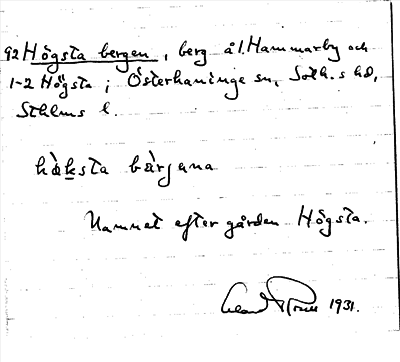 92 Högsta bergen, berg å 1. Hammarby och
1-2 Högsta i Österhaninge sn, Soth.s hd,
Sthlms l.
hàksta bàrjana
Namnet efter gården Högsta.
1931.